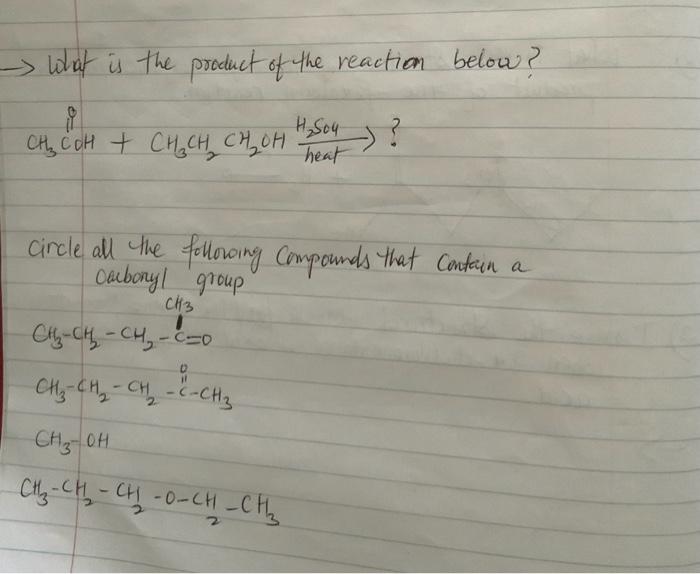 → What is the product of the reaction below?
O
CH₃ C OH + CH₃CH₂ CH₂OH H₂SO₄ heat → ?
Circle all the following Compounds that Contain a
Carbonyl group
CH3
CH₃-CH₂-CH₂-C=O
O
CH₃-CH₂-CH₂-C-CH₃
CH₃-OH
CH₃-CH₂-CH₂-O-CH₂-CH₃